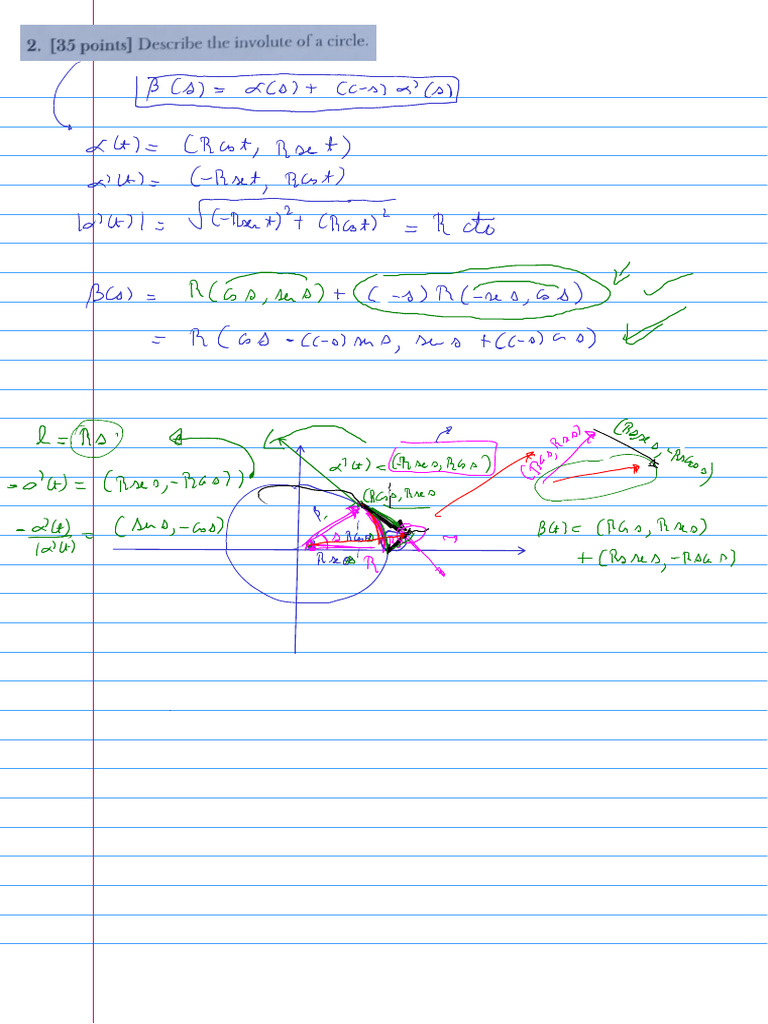 2. [35 points] Describe the involute of a circle.
β(s) = α(s) + (c-s) α'(s)
α(t) = (R cos t, R sen t)
α'(t) = (-R sen t, R cos t)
|α'(t)| = √((-R sen t)² + (R cos t)²) = R cto
β(s) = R(cos s, sen s) + (c-s) R(-sen s, cos s)
= R(cos s - (c-s) sen s, sen s + (c-s) cos s)
l = Rs
α'(t) = (-R sen s, R cos s)
(R cos s, R sen s)
(Rs sen s, -Rs cos s)
-α'(t) = (R sen s, -R cos s)
(R cos s, R sen s
-α'(t)/|α'(t)| = (sen s, -cos s)
R
β(t) = (R cos s, R sen s)
+ (Rs sen s, -Rs cos s)